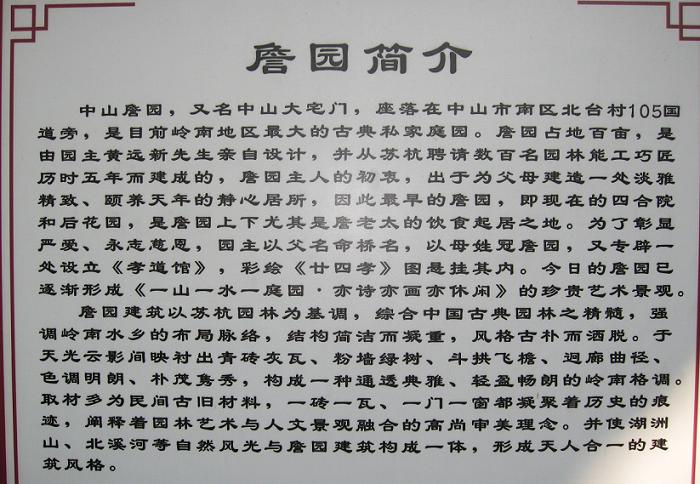 詹园简介
中山詹园，又名中山大宅门，座落在中山市南区北台村105国
道旁，是目前岭南地区最大的古典私家庭园。詹园占地百亩，是
由园主黄远新先生亲自设计，并从苏杭聘请数百名园林能工巧匠
历时五年而建成的，詹园主人的初衷，出于为父母建造一处淡雅
精致、颐养天年的静心居所，因此最早的詹园，即现在的四合院
和后花园，是詹园上下尤其是詹老太的饮食起居之地。为了彰显
严爱、永志慈恩，园主以父名命桥名，以母姓冠詹园，又专辟一
处设立《孝道馆》，彩绘《廿四孝》图悬挂其内。今日的詹园已
逐渐形成《一山一水一庭园·亦诗亦画亦休闲》的珍贵艺术景观。
詹园建筑以苏杭园林为基调，综合中国古典园林之精髓，强
调岭南水乡的布局脉络，结构简洁而凝重，风格古朴而洒脱。于
天光云影间映衬出青砖灰瓦、粉墙绿树、斗拱飞檐、迥廊曲径、
色调明朗、朴茂隽秀，构成一种通透典雅、轻盈畅朗的岭南格调。
取材多为民间古旧材料，一砖一瓦、一门一窗都凝聚着历史的痕
迹，阐释着园林艺术与人文景观融合的高尚审美理念。并使湖洲
山、北溪河等自然风光与詹园建筑构成一体，形成天人合一的建
筑风格。